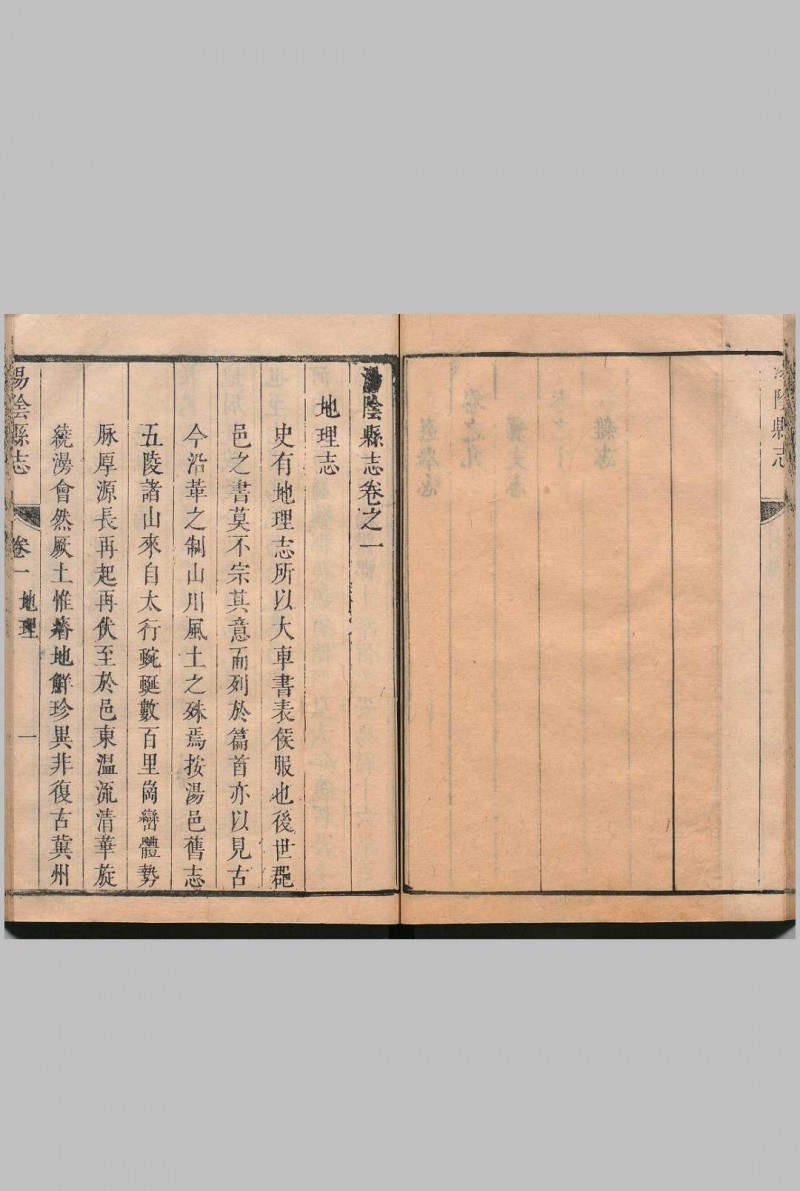 陰縣志
湯陰縣志卷之一
地理志
史有地理志所以大車書表侯服也後世郡
邑之書莫不宗其意而列於篇首亦以見古
今沿革之制山川風土之殊焉按湯邑舊志
五陵諸山來自太行蜿蜒數百里崗巒體勢
脉厚源長再起再伏至於邑東温流清華旋
繞湯會然厥土惟瘠地鮮珍異非復古冀州
湯陰縣志 卷一 地理 一